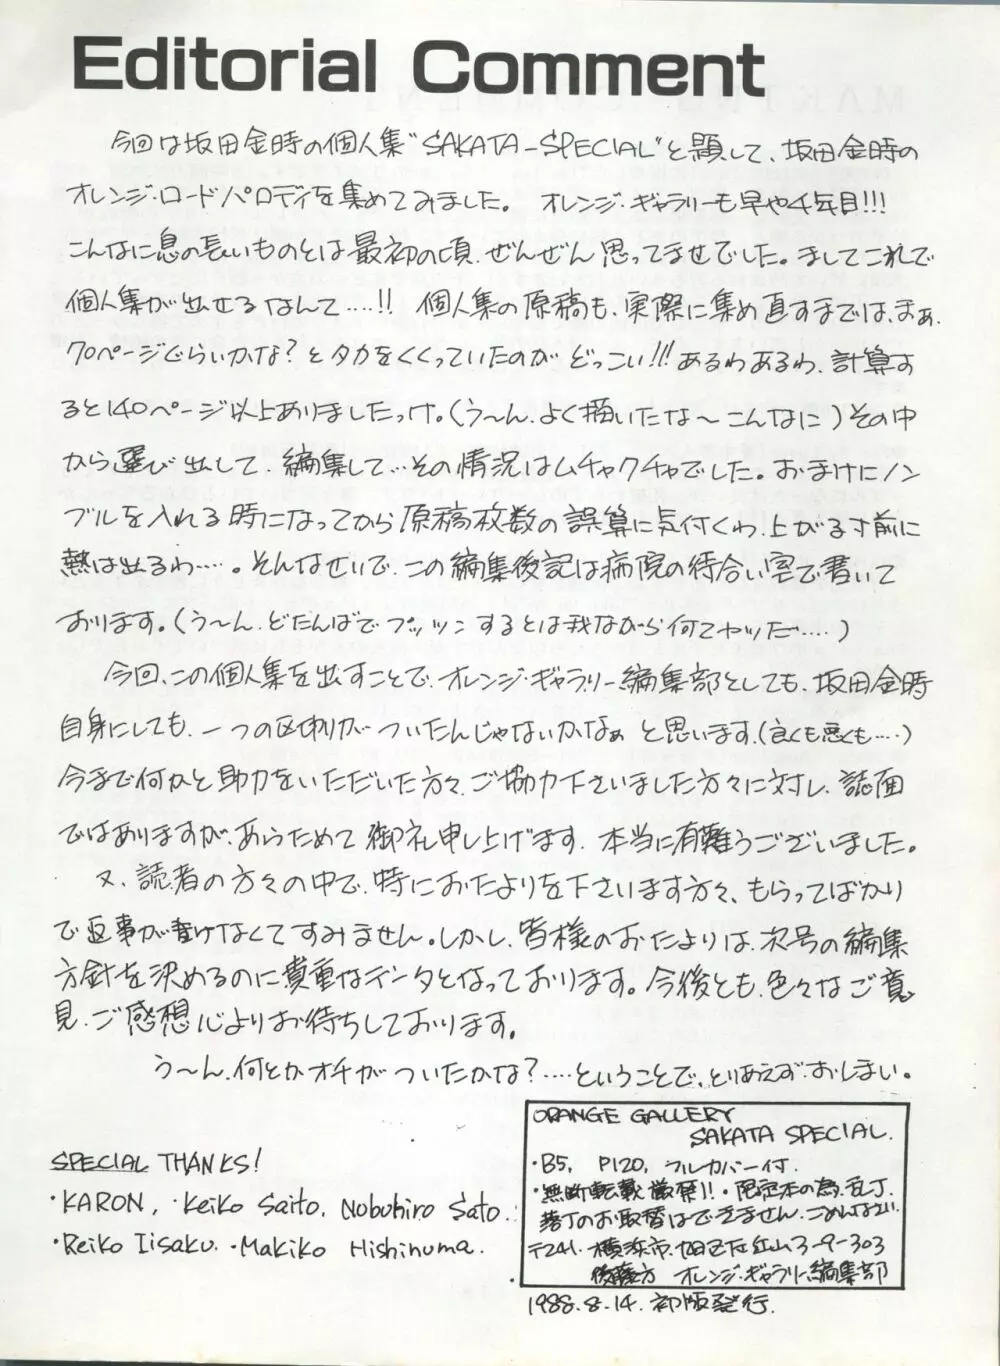 Editorial Comment
今回は坂田金時の個人集“SAKATA-SPECIAL”と題して、坂田金時の
オレンジ・ロードパロディを集めてみました。 オレンジ・ギャラリーも早や4年目!!!
こんなに息の長いものとは最初の頃、ぜんぜん思ってませでした。ましてこれで
個人集が出せるなんて……!! 個人集の原稿も、実際に集め直すまでは、まぁ、
70ページぐらいかな?とタカをくくっていたのがどっこい!!!あるわあるわ、計算す
ると140ページ以上ありましたっけ。(う〜ん、よく描いたな〜こんなに)その中
から選び出して、編集して…その情況はムチャクチャでした。おまけにノン
ブルを入れる時になってから原稿枚数の誤算に気付くわ、上がる寸前に
熱は出るわ……。そんなせいで、この編集後記は病院の待合い室で書いて
おります。(う〜ん、どたんばでプッツンするとは我ながら何てヤツだ……)
今回、この個人集を出すことで、オレンジ・ギャラリー編集部としても、坂田金時
自身にしても、一つの区切りがついたんじゃないかなぁと思います。(良くも悪くも……)
今まで何かと助力をいただいた方々、ご協力下さいました方々に対し、誌面
ではありますが、あらためて御礼申し上げます。本当に有難うございました。
又、読者の方々の中で、特におたよりを下さいます方々、もらってばかり
で返事が書けなくてすみません。しかし、皆様のおたよりは、次号の編集
方針を決めるのに貴重なデータとなっております。今後とも、色々なご意
見、ご感想心よりお待ちしております。
う〜ん、何とかオチがついたかな?……ということで、とりあえず、おしまい。
SPECIAL THANKS!
・KARON, ・Keiko Saito, Nobuhiro Sato.
・Reiko Iisaku. ・Makiko Hishinuma.
ORANGE GALLERY
SAKATA SPECIAL.
・B5, P120, フルカバー付.
・無断転載厳禁!!・限定本の為、乱丁、
落丁のお取替はできません。ごめんなさい。
〒241. 横浜市旭区左近山3-9-303
後藤方 オレンジ・ギャラリー編集部
1988.8.14.初版発行.